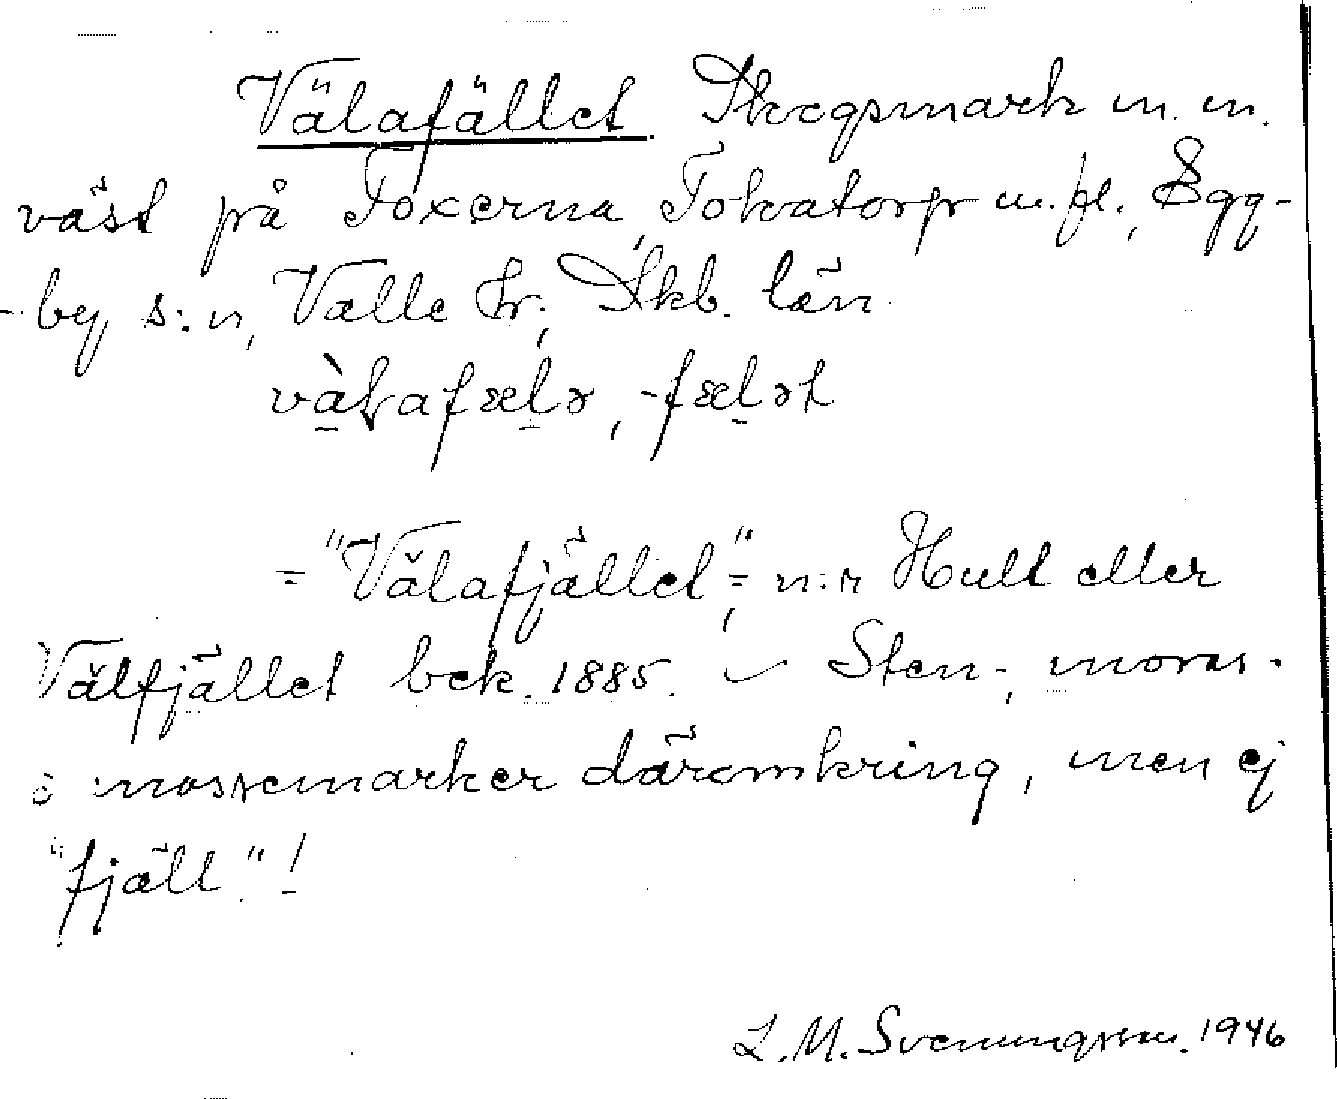 Välafället. Skogsmark m. m.
väst på Foxerna, Tokatorp m. fl., Egg-
- by s:n, Valle hr., Skb. län.
vàłafælə, -fælət
= "Välafjället", = n:r Hult eller
Välfjället bek. 1885. ✓ Sten-, moras-
o mossemarker däromkring, men ej
"fjäll"!
L. M. Svenungsson. 1946